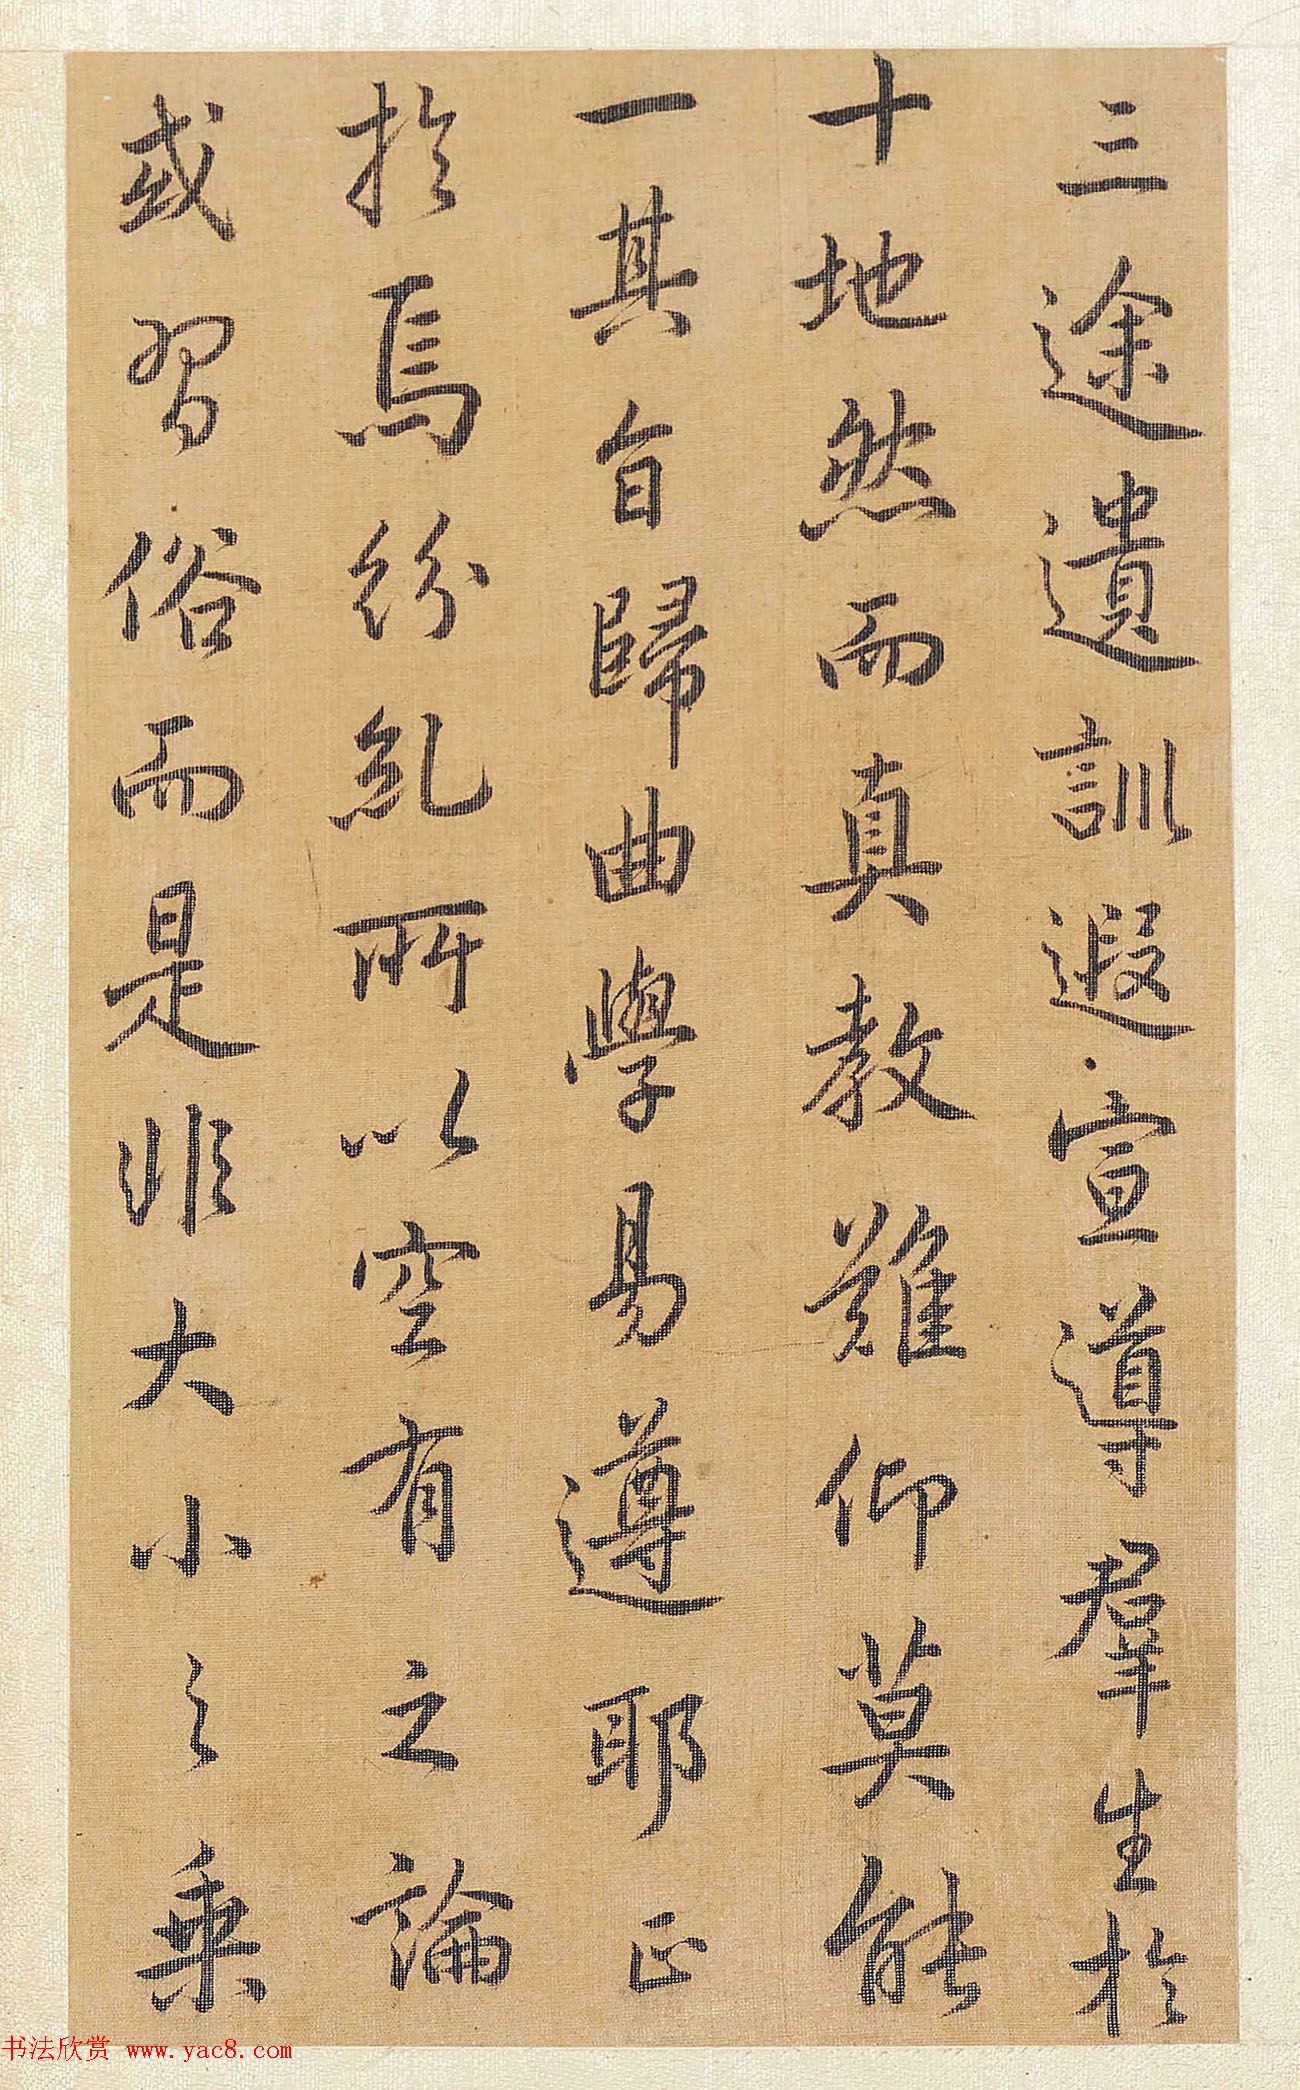 三途遺訓遐宣導羣生於
十地然而真教難仰莫能
一其旨歸曲學易遵耶正
於焉紛糺所以空有之論
或習俗而是非大小之乘
书法欣赏 www.yac8.com